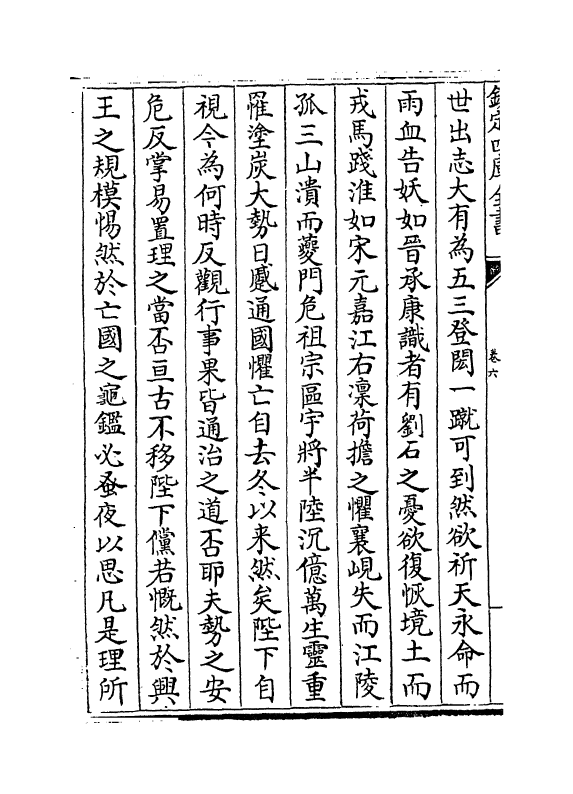 欽定四庫全書
卷六
世出志大有為五三登閎一蹴可到然欲祈天永命而
雨血告妖如晉承康識者有劉石之憂欲復恢境土而
戎馬踐淮如宋元嘉江右凜荷擔之懼襄峴失而江陵
孤三山潰而夔門危祖宗區宇將半陸沉億萬生靈重
罹塗炭大勢日蹙通國懼亡自去冬以来然矣陛下自
視今為何時反觀行事果皆通治之道否耶夫勢之安
危反掌易置理之當否亘古不移陛下儻若慨然於興
王之規模惕然於亡國之龜鑑必蚤夜以思凡是理所